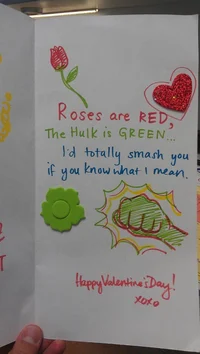 Roses are RED,
The Hulk is GREEN...
I'd totally smash you
if you know what I mean.
Happy Valentine's Day!
xoxo